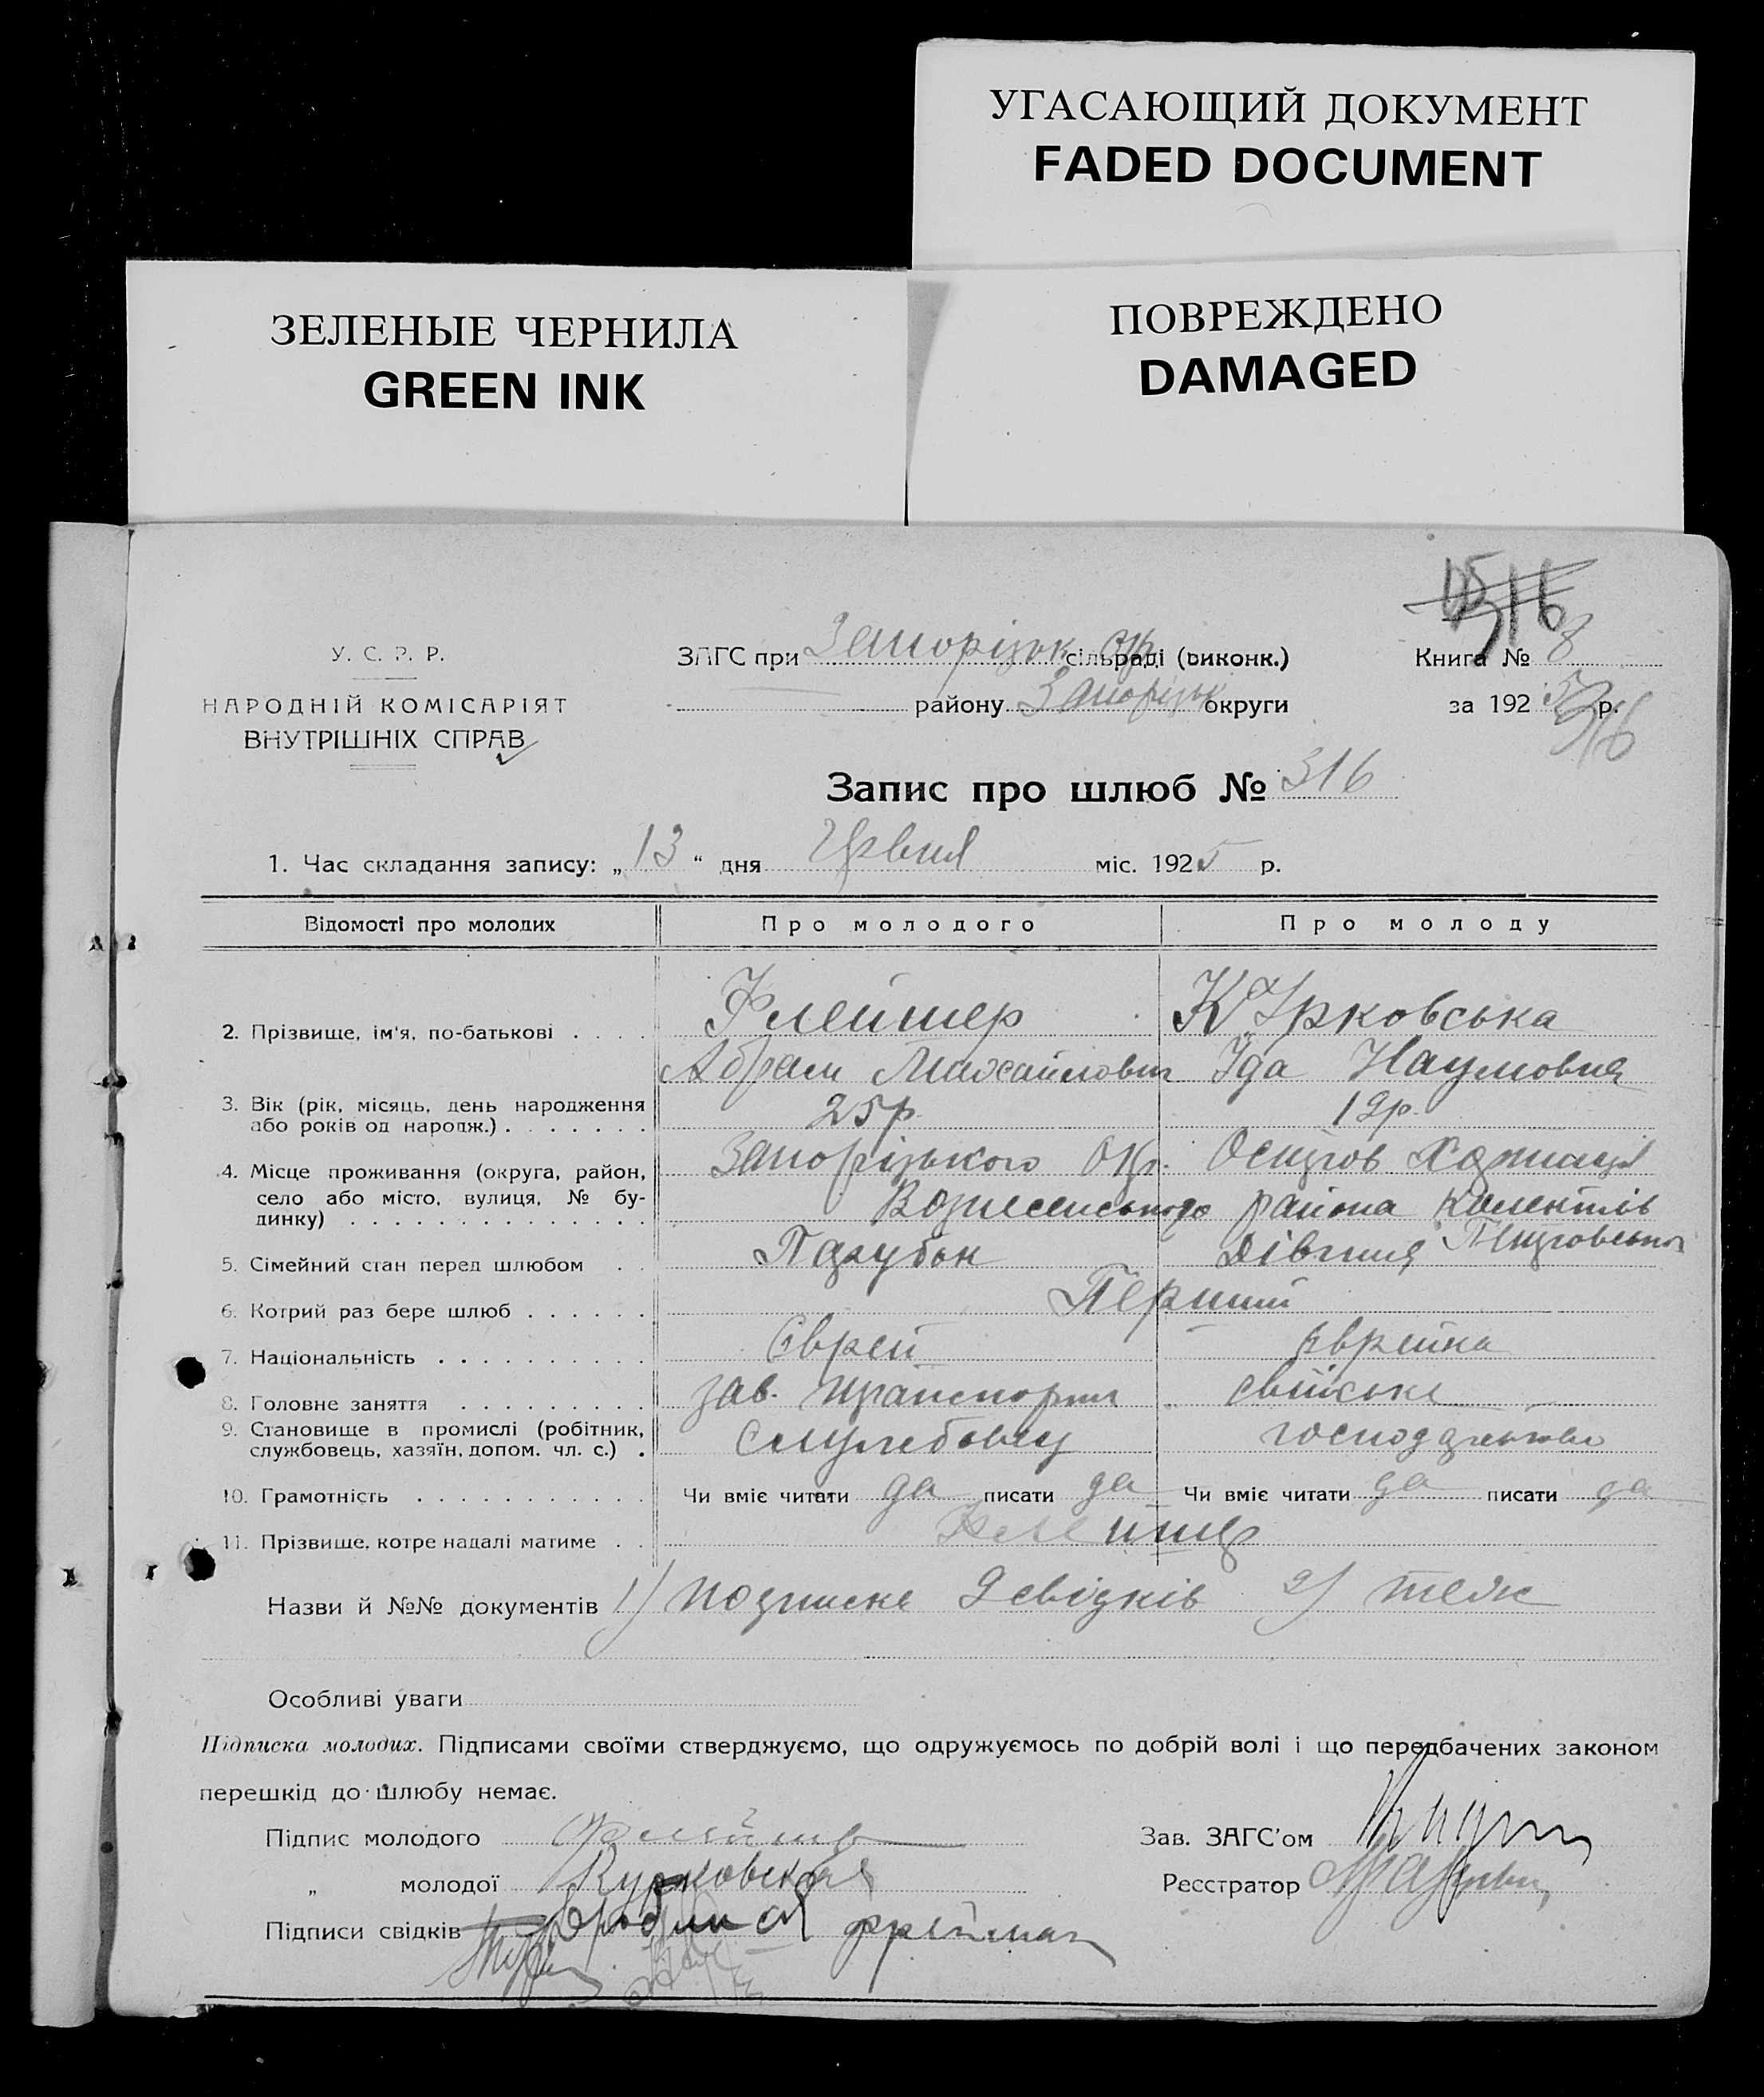 УГАСАЮЩИЙ ДОКУМЕНТ
FADED DOCUMENT
ЗЕЛЕНЫЕ ЧЕРНИЛА
GREEN INK
ПОВРЕЖДЕНО
DAMAGED
316
У. С. Р. Р.
НАРОДНІЙ КОМІСАРІЯТ
ВНУТРІШНІХ СПРАВ
ЗАГС при Запорізьк окр. сільраді (виконк.)
Книга № 8
району Запорізьк округи
за 1925 р.
316
Запис про шлюб № 316
1. Час складання запису: „ 13 “ дня Червня міс. 1925 р.
Відомості про молодих Про молодого Про молоду
2. Прізвище, ім'я, по-батькові . . . . Флейшер Курковська
Абрам Михайлович Іда Наумовна
3. Вік (рік, місяць, день народження 25р. 19р.
або років од народж.) . . . . . . .
4. Місце проживання (округа, район, Запорізького Окр.
село або місто, вулиця, № бу- Вознесенського района
динку) . . . . . . . . . . . . . .
5. Сімейний стан перед шлюбом . . Парубок Дівчина
6. Котрий раз бере шлюб . . . . . . Перший
7. Національність . . . . . . . . . . Єврей Єврейка
8. Головне заняття . . . . . . . . . зав. транспорт
9. Становище в промислі (робітник, Службовец
службовець, хазяїн, допом. чл. с.) .
10. Грамотність . . . . . . . . . . . Чи вміє читати да писати да Чи вміє читати да писати да
11. Прізвище, котре надалі матиме . . Флейшер
Назви й №№ документів 1) подписка 2 свідків 2) теж
Особливі уваги
Підписка молодих. Підписами своїми стверджуємо, що одружуємось по добрій волі і що передбачених законом
перешкід до шлюбу немає.
Підпис молодого Флейшер
Зав. ЗАГС'ом
„ молодої Курковская
Реєстратор
Підписи свідків